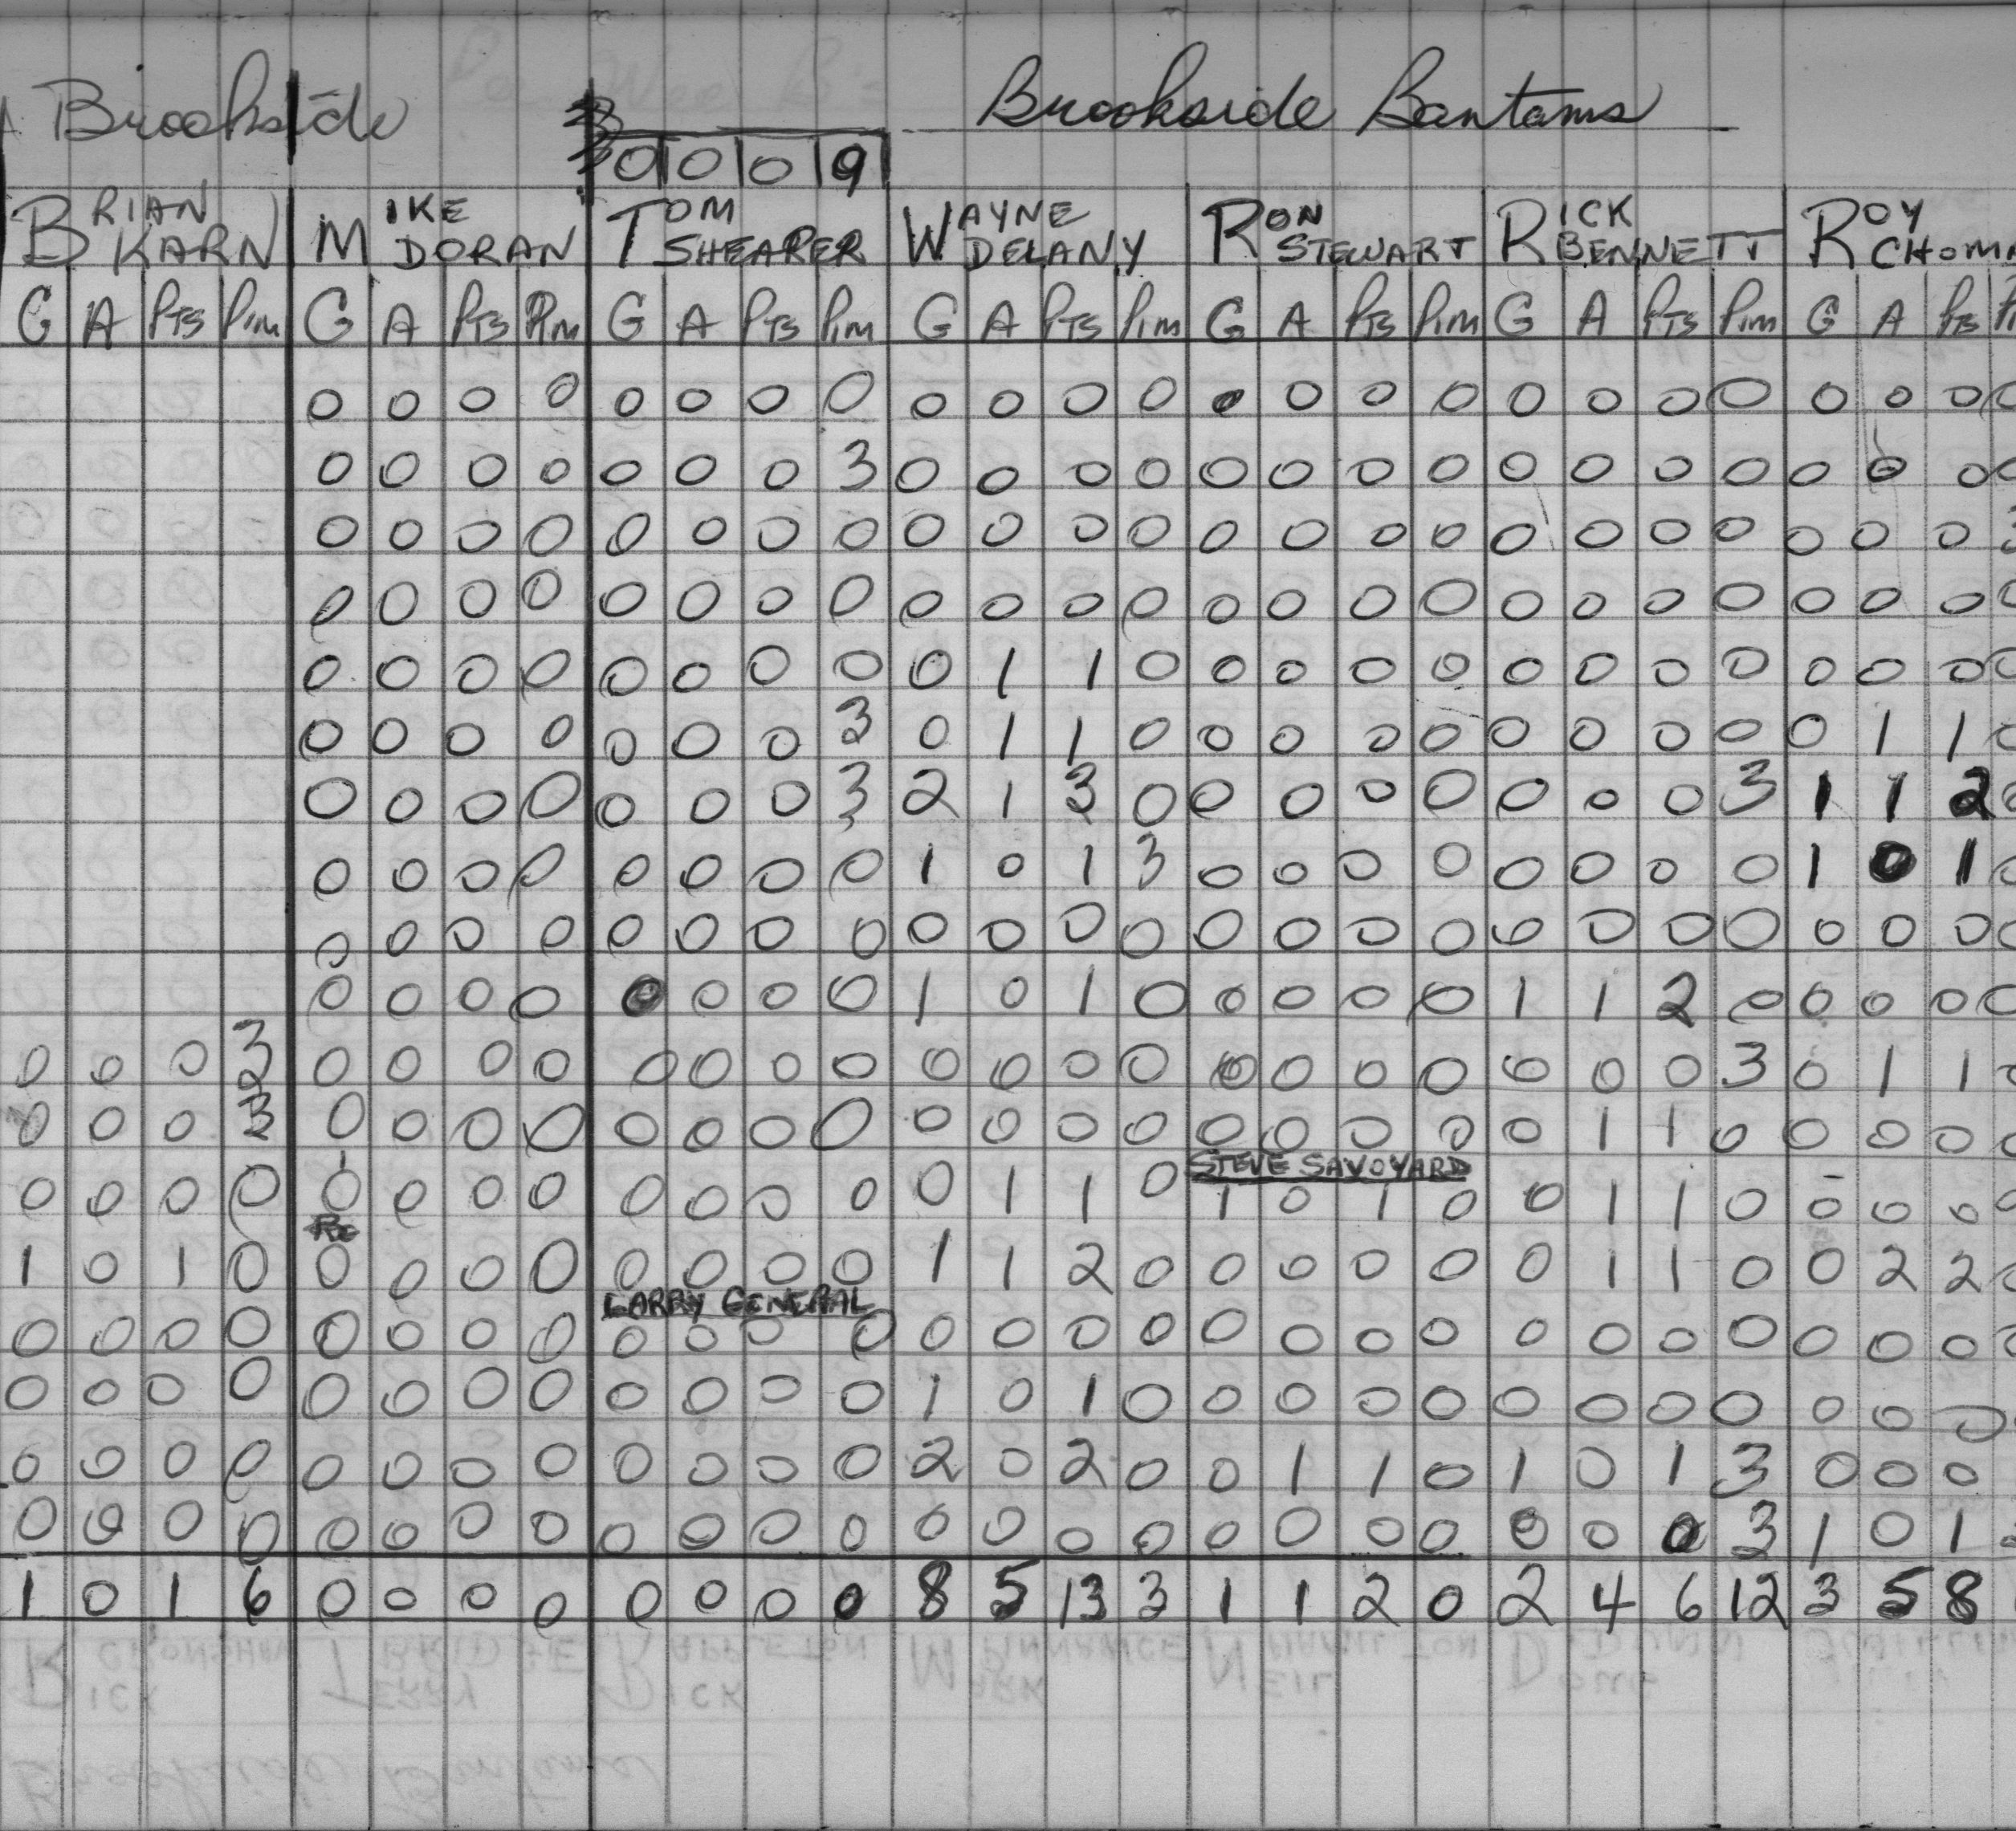 Brookside Brookside Bantams
0 0 0 9
BRIAN KARN MIKE DORAN TOM SHEARER WAYNE DELANY RON STEWART RICK BENNETT ROY CHOMA
G A PTS PIM G A PTS PIM G A PTS PIM G A PTS PIM G A PTS PIM G A PTS PIM G A PTS PI
0 0 0 0 0 0 0 0 0 0 0 0 0 0 0 0 0 0 0 0 0 0 0 0
0 0 0 0 0 0 0 3 0 0 0 0 0 0 0 0 0 0 0 0 0 0 0 0
0 0 0 0 0 0 0 0 0 0 0 0 0 0 0 0 0 0 0 0 0 0 0 3
0 0 0 0 0 0 0 0 0 0 0 0 0 0 0 0 0 0 0 0 0 0 0 0
0 0 0 0 0 0 0 0 0 1 1 0 0 0 0 0 0 0 0 0 0 0 0 0
0 0 0 0 0 0 0 3 0 1 1 0 0 0 0 0 0 0 0 0 0 1 1 0
0 0 0 0 0 0 0 3 2 1 3 0 0 0 0 0 0 0 0 3 1 1 2 0
0 0 0 0 0 0 0 0 1 0 1 3 0 0 0 0 0 0 0 0 1 0 1 0
0 0 0 0 0 0 0 0 0 0 0 0 0 0 0 0 0 0 0 0 0 0 0 0
0 0 0 0 0 0 0 0 1 0 1 0 0 0 0 0 1 1 2 0 0 0 0 0
0 0 0 3 0 0 0 0 0 0 0 0 0 0 0 0 0 0 0 0 0 0 0 3 0 1 1
0 0 0 3 0 0 0 0 0 0 0 0 0 0 0 0 0 0 0 0 0 1 1 0 0 0 0 0
STEVE SAVOYARD
0 0 0 0 0 0 0 0 0 0 0 0 0 1 1 0 1 0 1 0 0 1 1 0 0 0 0 0
1 0 1 0 0 0 0 0 0 0 0 0 1 1 2 0 0 0 0 0 0 1 1 0 0 2 2
LARRY GENERAL
0 0 0 0 0 0 0 0 0 0 0 0 0 0 0 0 0 0 0 0 0 0 0 0 0 0 0
0 0 0 0 0 0 0 0 0 0 0 0 1 0 1 0 0 0 0 0 0 0 0 0 0 0 0
0 0 0 0 0 0 0 0 0 0 0 0 2 0 2 0 0 1 1 0 1 0 1 3 0 0 0
0 0 0 0 0 0 0 0 0 0 0 0 0 0 0 0 0 0 0 0 0 0 0 3 1 0 1
1 0 1 6 0 0 0 0 0 0 0 0 8 5 13 3 1 1 2 0 2 4 6 12 3 5 8